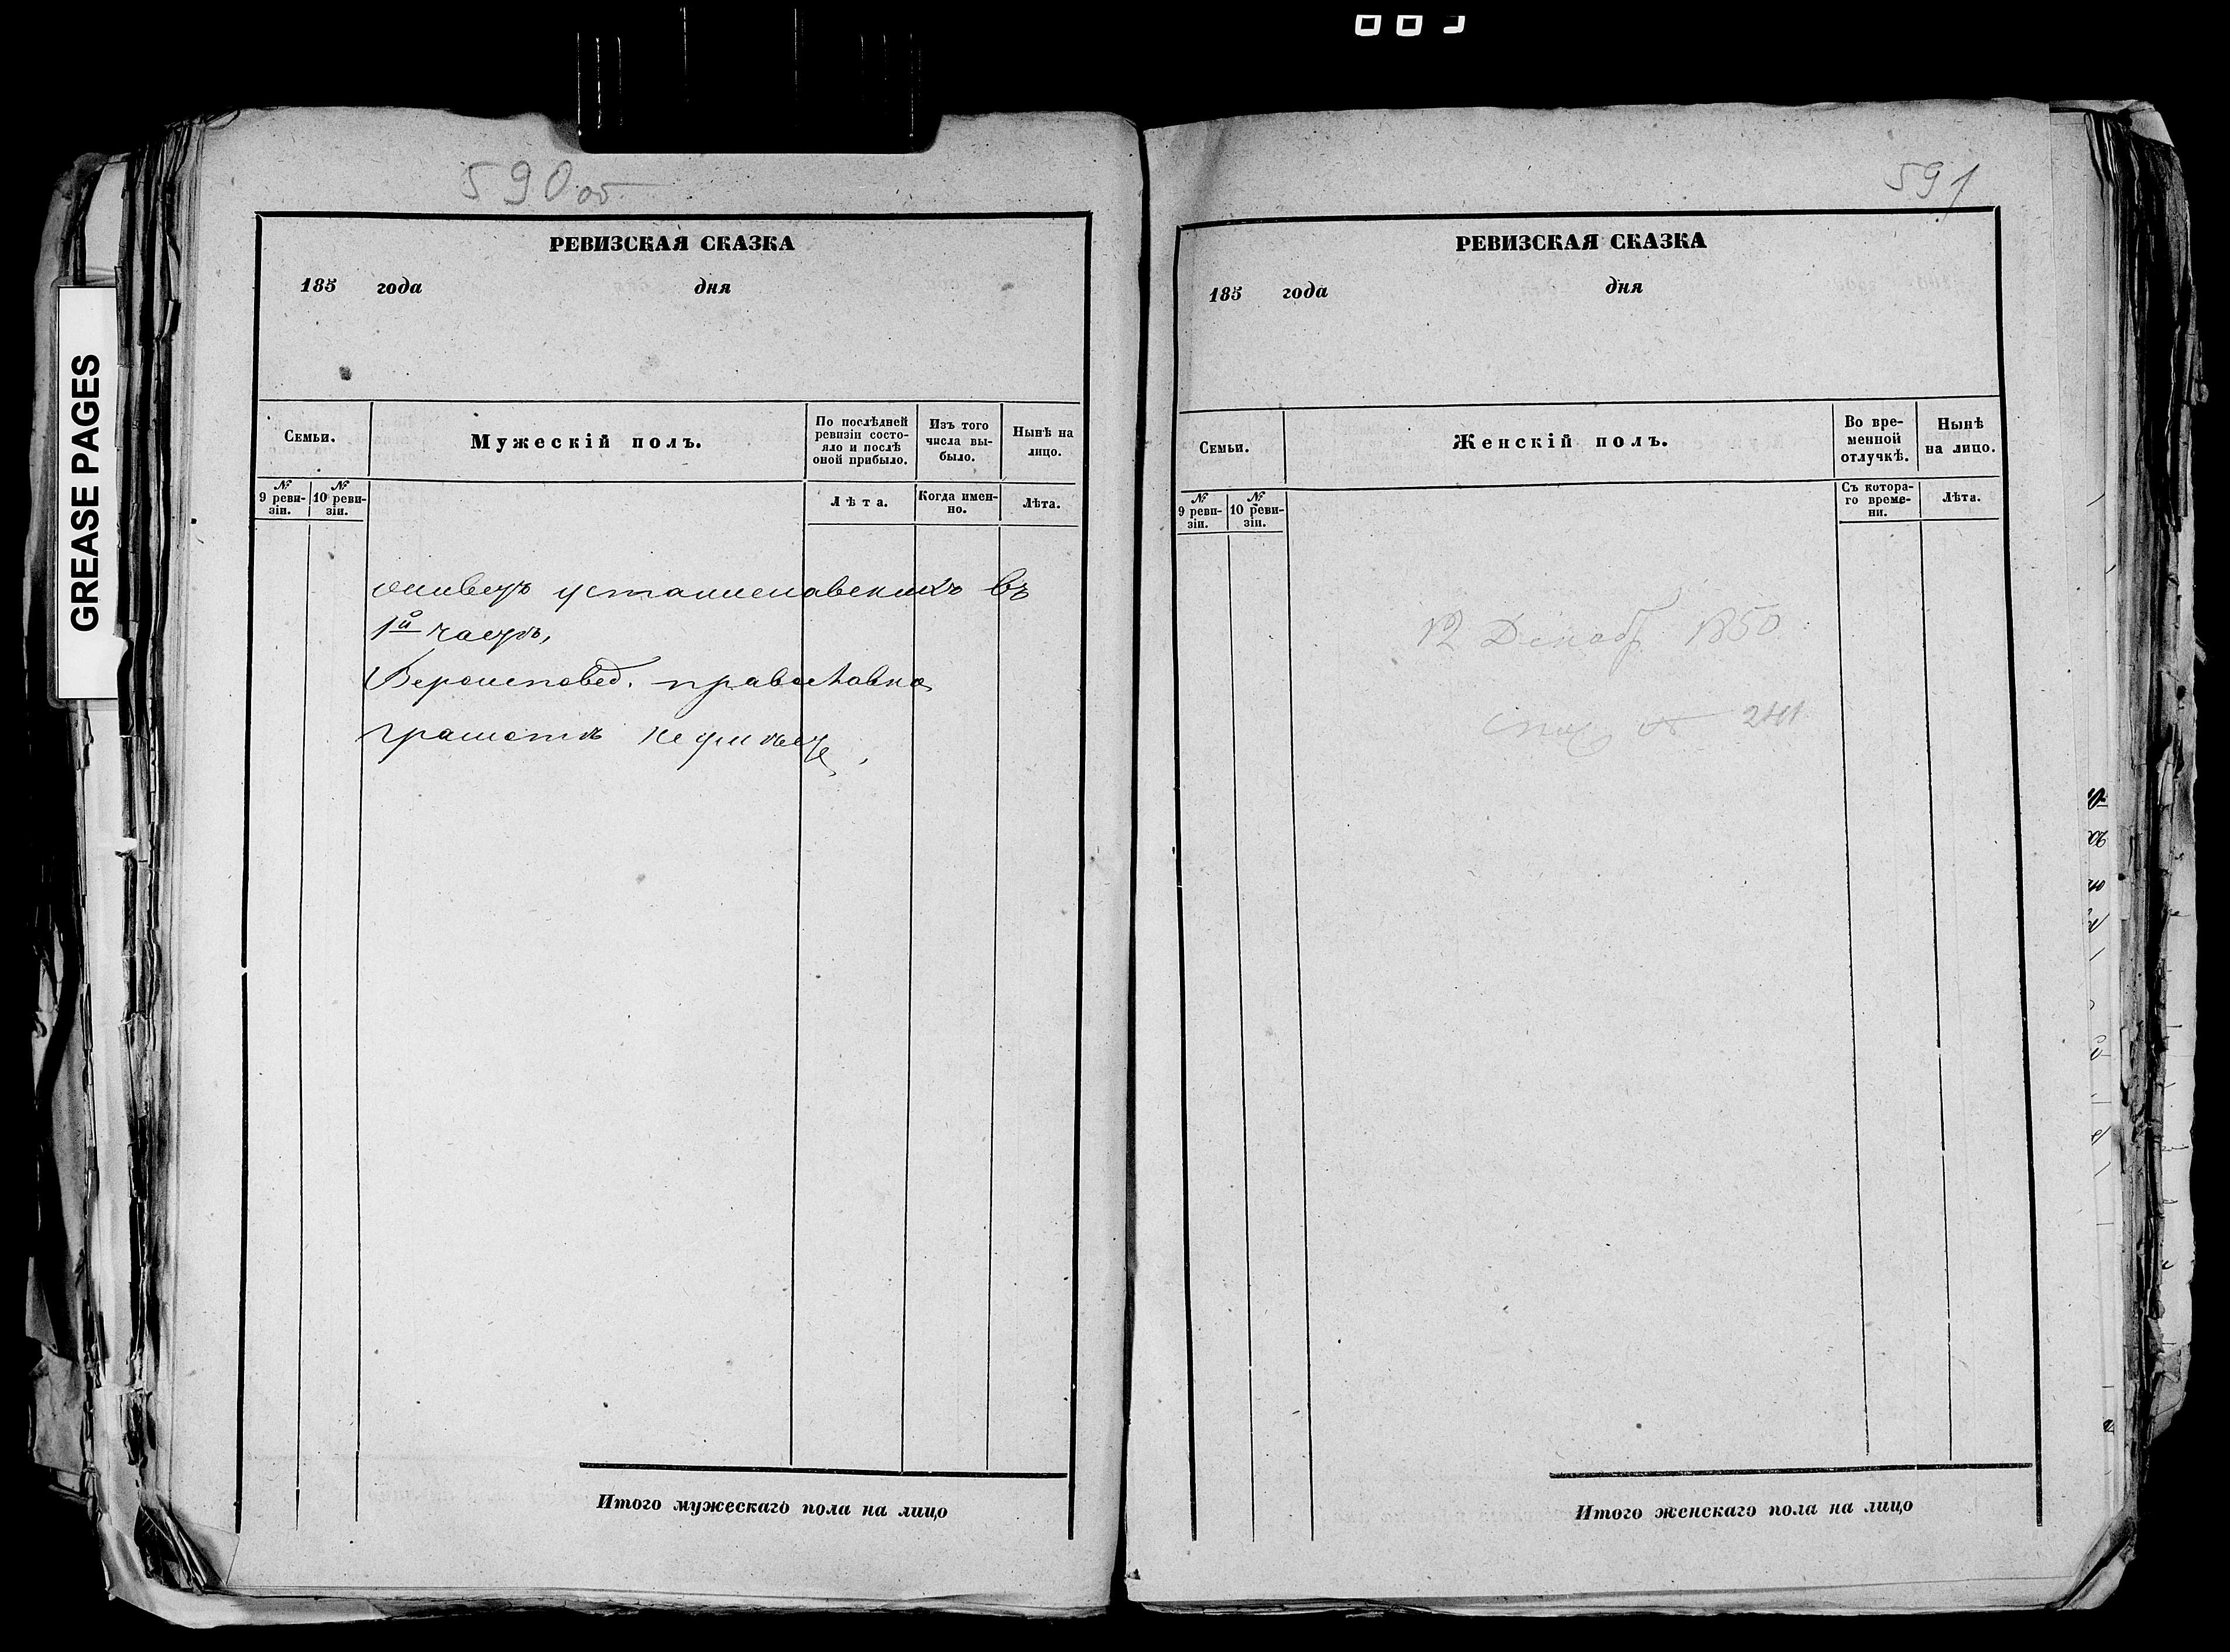 GREASE PAGES
590 об
РЕВИЗСКАЯ СКАЗКА
185 года дня
Семьи.
Мужескій полъ.
По послѣдней ревизіи состояло и послѣ оной прибыло.
Изъ того числа выбыло.
Нынѣ на лицо.
№ 9 ревизіи.
№ 10 ревизіи.
Лѣта.
Когда именно.
Лѣта.
живетъ въ
1й части,
Вероисповед. православна
грамотѣ не умѣетъ,
Итого мужескаго пола на лицо
591
РЕВИЗСКАЯ СКАЗКА
185 года дня
Семьи.
Женскій полъ.
Во временной отлучкѣ.
Нынѣ на лицо.
№ 9 ревизіи.
№ 10 ревизіи.
Съ котораго времени.
Лѣта.
12 Декабр 1850
№ 241
Итого женскаго пола на лицо